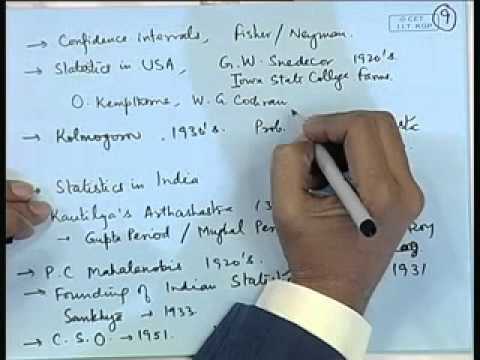 © CET
I.I.T. KGP
19
→ Confidence intervals, Fisher/Neyman.
→ Statistics in USA, G.W. Snedecor 1920's
Iowa State College farms.
O. Kempthorne, W. G Cochran
→ Kolmogorov. 1930's. Prob.
→ Statistics in India
Kautilya's Arthashastra (3
→ Gupta Period / Mughal Per
→ P.C Mahalanobis 1920's.
→ Founding of Indian Statist 1931
Sankhya → 1933.
→ C.S.O. → 1951.